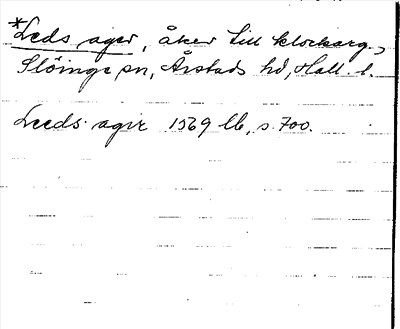 *Leds ager, åker till klockarg.,
Slöinge sn, Årstads hd, Hall. l.
Leeds agir 1569 lb, s. 700.